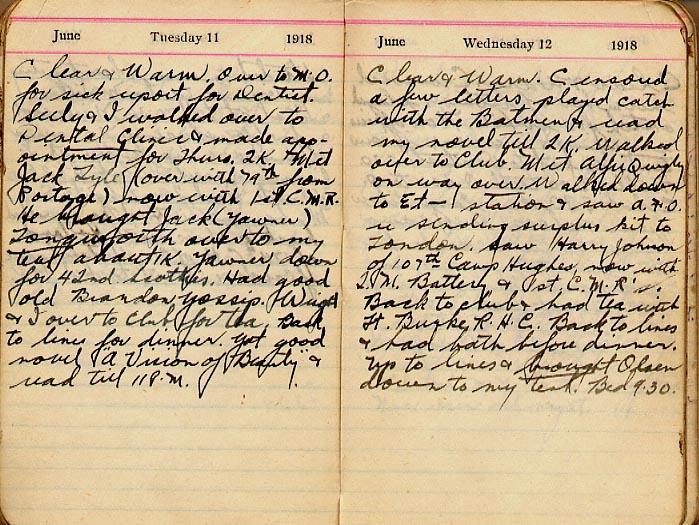 June Tuesday 11 1918
Clear & Warm. Over to M.O.
for sick report for Dentist.
Seely & I walked over to
Dental Clinic & made app-
ointment for Thurs. 2K. Met
Jack Lyle (over with 79th from
Portage) now with 1st C.M.R.
He brought Jack (Yawner)
Longworth over to my
tent about 1K. Yawner down
for 42nd brothers. Had good
old Brandon gossip. Wright
& I over to Club for tea. Back
to lines for dinner. Got good
novel "A Vision of Beauty" &
read till 11 P.M.
June Wednesday 12 1918
Clear & Warm. Censored
a few letters, played catch
with the Batmen & read
my novel till 2K. Walked
over to Club. Met Alfie Quigly
on way over. Walked down
to Et— station & saw A.F.O.
re sending surplus kit to
London. Saw Harry Johnson
of 107th Camp Hughes, now with
T.M. Battery & 1st. C.M.R's.
Back to club & had tea with
Lt. Burke, R.H.C. Back to lines
& had bath before dinner.
Up to lines & brought Olsen
down to my tent. Bed 9.30.